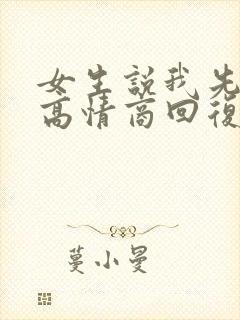 女生説我先
高情商回復
蔓小曼